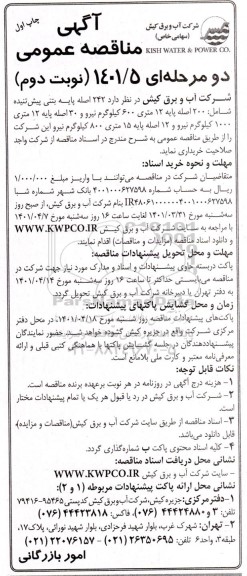 چاپ اول
آگهی
مناقصه عمومی
شرکت آب و برق کیش
(سهامی خاص)
KISH WATER & POWER CO.
دو مرحله‌ای ۱۴۰۱/۵ (نوبت دوم)
شرکت آب و برق کیش در نظر دارد ۲۴۲ اصله پایه بتنی پیش‌تنیده
شامل: ۲۰۰ اصله پایه ۱۲ متری ۶۰۰ کیلوگرم نیرو و ۳۰ اصله پایه ۱۲ متری
۱۰۰۰ کیلوگرم نیرو و ۱۲ اصله پایه ۱۵ متری ۸۰۰ کیلوگرم نیرو این شرکت
را از طریق مناقصه عمومی به شرح مندرج در اسناد مناقصه از شرکت واجد
صلاحیت خریداری نماید.
مهلت و نحوه خرید اسناد:
متقاضیان شرکت در مناقصه می‌توانند با واریز مبلغ ۱/۰۰۰/۰۰۰
ریال به حساب شماره ۴۰۰۱۰۰۰۶۲۷۵۹۸ بانک شهر به شماره شبا
بنام شرکت آب و برق کیش، از صبح روز
سه‌شنبه مورخ ۱۴۰۱/۰۳/۳۱ لغایت ساعت ۱۶ روز سه‌شنبه مورخ ۱۴۰۱/۰۴/۷
با مراجعه به سایت شرکت آب و برق کیش WWW.KWPCO.IR
و دانلود اسناد مناقصه (مزایدات و مناقصات) اقدام نمایند.
مهلت و محل تحویل پیشنهادات مناقصه:
پاکت دربسته حاوی پیشنهادات و اسناد و مدارک مورد نیاز جهت شرکت در
مناقصه می‌بایستی حداکثر تا ساعت ۱۶ روز سه‌شنبه مورخ ۱۴۰۱/۰۴/۱۴
به دفتر تهران یا دبیرخانه شرکت آب و برق کیش تحویل گردد.
زمان و محل گشایش پاکتهای پیشنهادات:
پاکت‌های پیشنهادات مناقصه روز شنبه مورخ ۱۴۰۱/۰۴/۱۸، در محل دفتر
مرکزی شرکت واقع در جزیره کیش گشوده خواهد شد. حضور نمایندگان
پیشنهاددهندگان در جلسه گشایش پاکتها با هماهنگی کتبی قبلی و ارائه
معرفی‌نامه معتبر و کارت ملی بلامانع است.
نکات قابل توجه:
۱- هزینه درج آگهی در روزنامه در هر نوبت برعهده برنده مناقصه است.
۲- شرکت آب و برق کیش در رد یا قبول هر یک یا تمام پیشنهادات مختار
است.
۳- اسناد مناقصه از طریق سایت شرکت آب و برق کیش (مناقصات و مزایده)
قابل دانلود می‌باشد.
۴- کلیه اسناد محتوی پاکت ب شماره‌گذاری گردد.
نشانی محل دریافت اسناد مناقصه:
- سایت شرکت آب و برق کیش WWW.KWPCO.IR
نشانی محل ارائه پاکت پیشنهادات مربوطه (۱ و ۲):
۱- دفتر مرکزی: جزیره کیش، شرکت آب و برق کیش کدپستی ۹۵۴۶۵-۷۹۴۱۶
تلفن: ۳ و ۴۴۴۲۴۸۸۰ (۰۷۶) فاکس: ۴۴۴۲۳۸۱۸ (۰۷۶)
۲- تهران: شهرک غرب، بلوار شهید فرحزادی، بلوار شهید نورانی، پلاک ۱۷،
طبقه ۳، واحد ۶ تلفن: ۲۶۳۵۰۶۹۵ (۰۲۱) فاکس: ۲۲۰۷۶۱۵۷ (۰۲۱)
امور بازرگانی